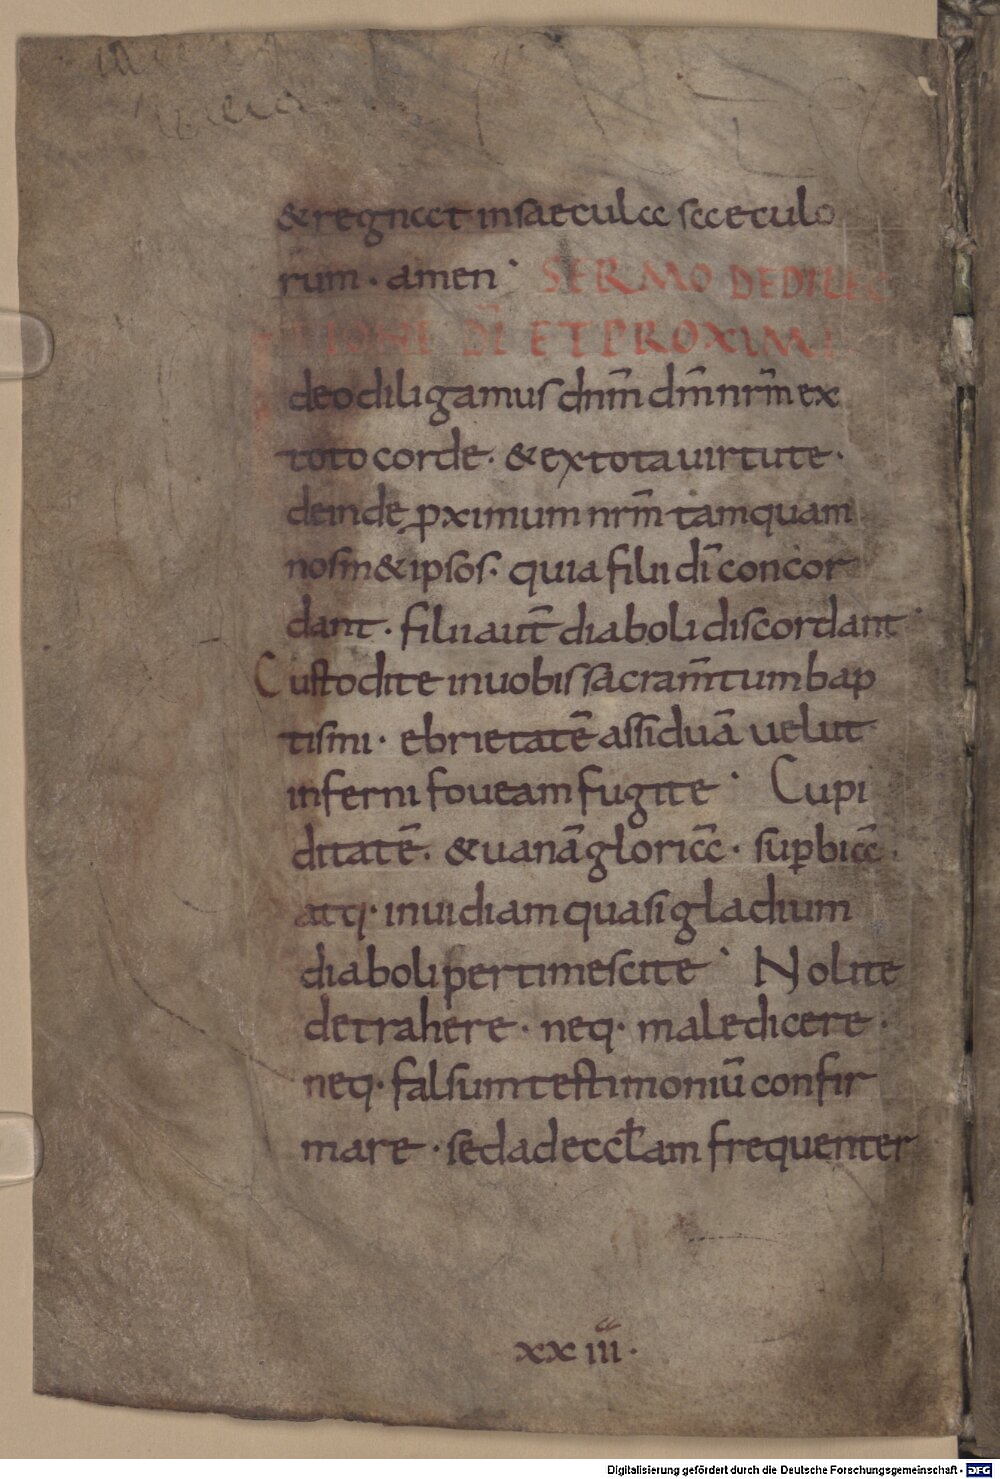 & regnat in saecula saeculo
rum · amen · SERMO DE DILEC
TIONE DĪ ET PROXIMI
deo diligamus dnm̄ dm̄ nrm̄ ex
toto corde · & ex tota uirtute ·
deinde ꝓximum nrm̄ tamquam
nosm&ipsos · quia filii dī concor
dant · filii aut̄ diaboli discordant ·
Custodite in uobis sacram̄tum bap
tismi · ebrietatē assiduā uelut
inferni foueam fugite · Cupi
ditatē · & uanā gloriā · suꝑbiā ·
atq· inuidiam quasi gladium
diaboli pertimescite · Nolite
detrahere · neq· maledicere ·
neq· falsum testimoniū confir
mare · sed ad eccl̄am frequenter
xxiii ·
Digitalisierung gefördert durch die Deutsche Forschungsgemeinschaft - DFG